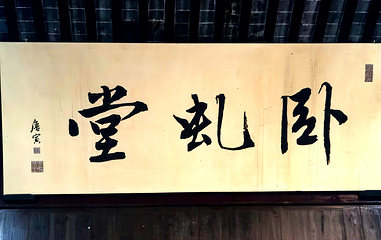 卧虬堂
唐寅